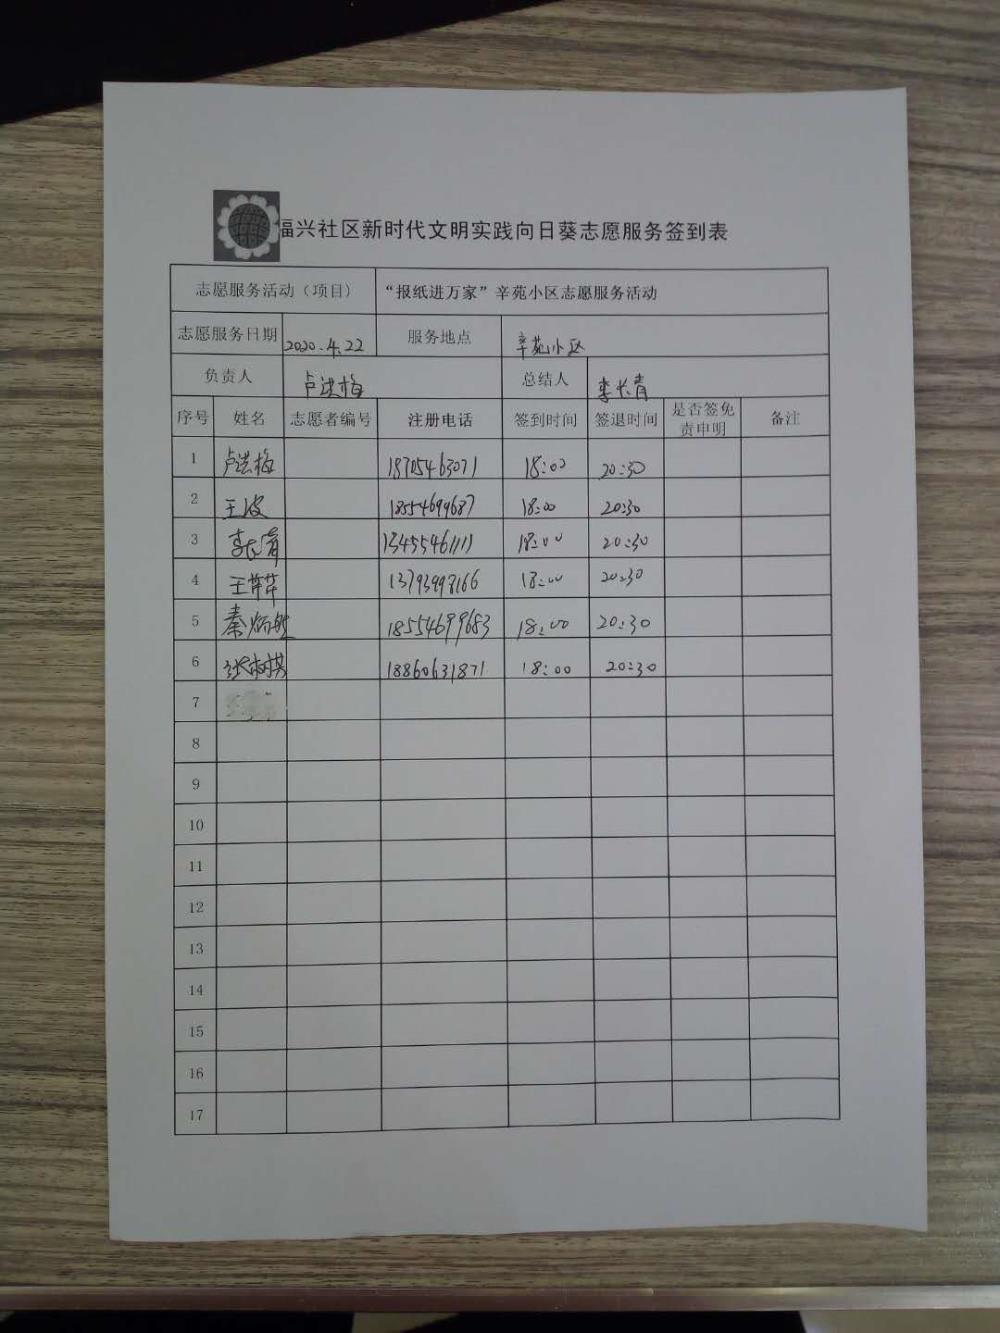 福兴社区新时代文明实践向日葵志愿服务签到表
志愿服务活动（项目） “报纸进万家”辛苑小区志愿服务活动
志愿服务日期 2020.4.22 服务地点 辛苑小区
负责人 卢洪梅 总结人 李长青
序号 姓名 志愿者编号 注册电话 签到时间 签退时间 是否签免责申明 备注
1 卢洪梅 18705463071 18:00 20:30
2 王波 18554699687 18:00 20:30
3 李长青 13455461111 18:00 20:30
4 王萍萍 13793998166 18:00 20:30
5 18554699683 18:00 20:30
6 18860631871 18:00 20:30
7
8
9
10
11
12
13
14
15
16
17